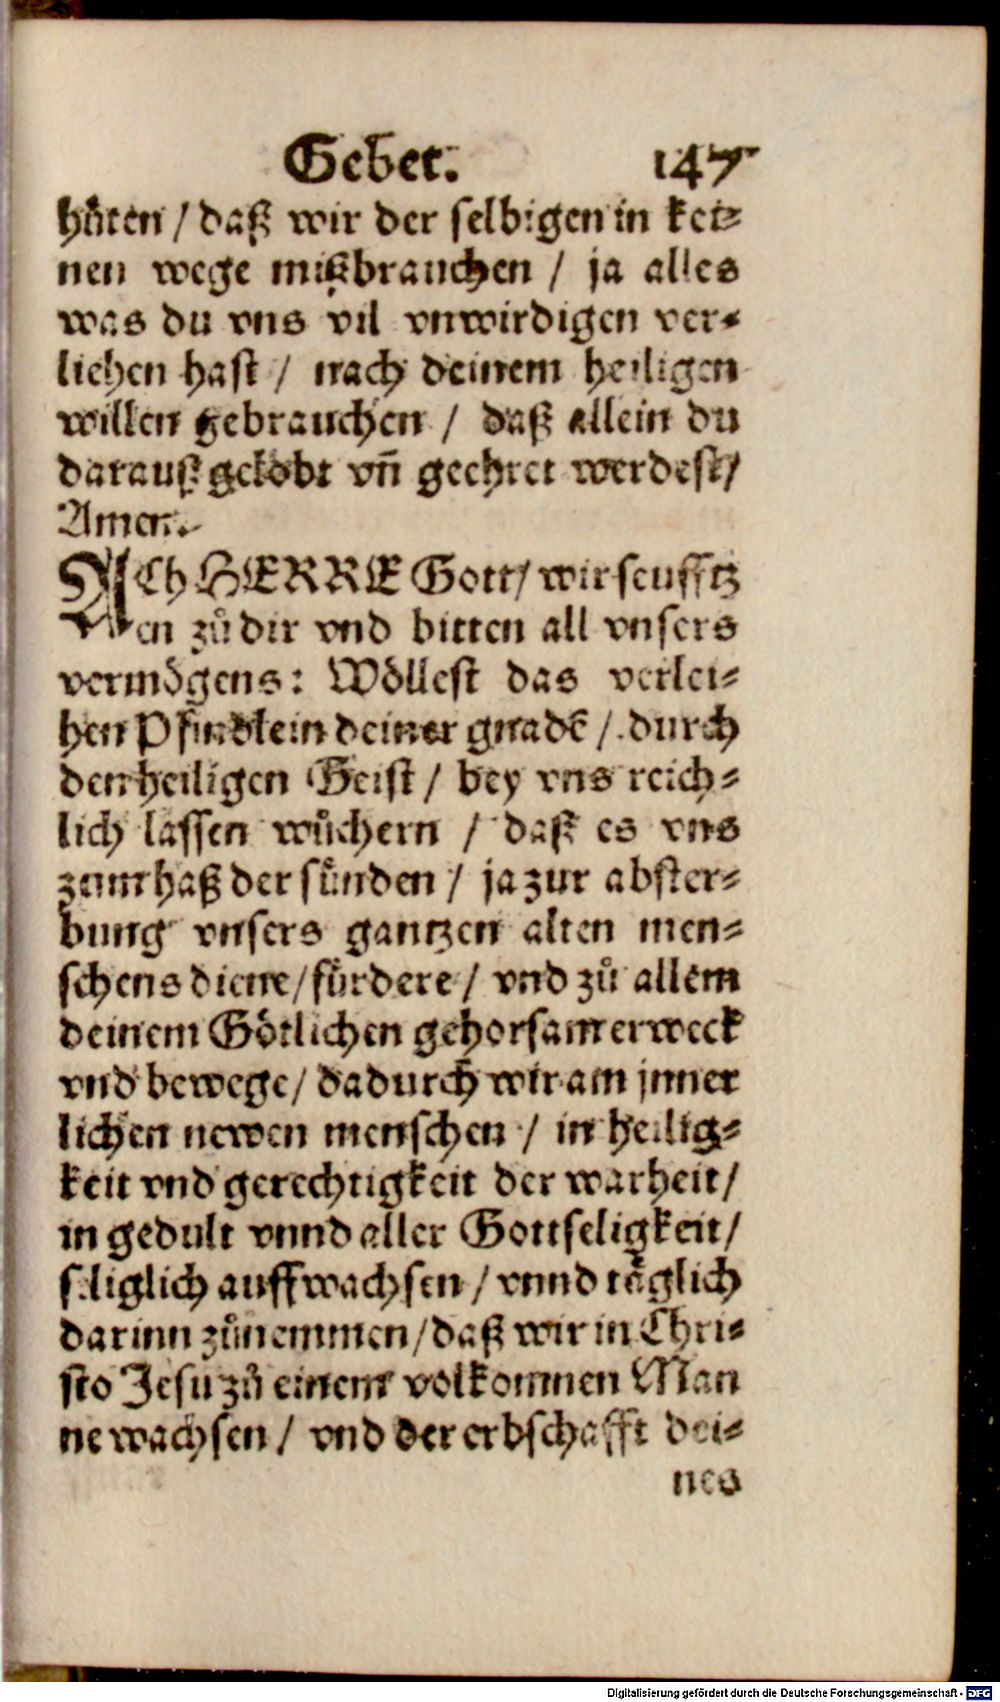 Gebet. 147
hůten / daß wir der selbigen in kei⸗
nen wege mißbrauchen / ja alles
was du vns vil vnwirdigen ver⸗
liehen hast / nach deinem heiligen
willen gebrauchen / daß allein du
darauß gelobt vñ geehret werdest /
Amen.
ACh HERRE Gott / wir seufftz
en zů dir vnd bitten all vnsers
vermögens: Wöllest das verlei⸗
hen Pfündlein deiner gnadẽ / durch
den heiligen Geist / bey vns reich⸗
lich lassen wůchern / daß es vns
zum haß der sünden / ja zur abster⸗
bung vnsers gantzen alten men⸗
schens diene / fürdere / vnd zů allem
deinem Götlichen gehorsam erweck
vnd bewege / dadurch wir am jnner
lichen newen menschen / in heilig⸗
keit vnd gerechtigkeit der warheit /
in gedult vnnd aller Gottseligkeit /
seliglich auffwachsen / vnnd täglich
darinn zůnemmen / daß wir in Chri⸗
sto Jesu zů einem volkomnen Man
ne wachsen / vnd der erbschafft dei⸗
nes
Digitalisierung gefördert durch die Deutsche Forschungsgemeinschaft - DFG